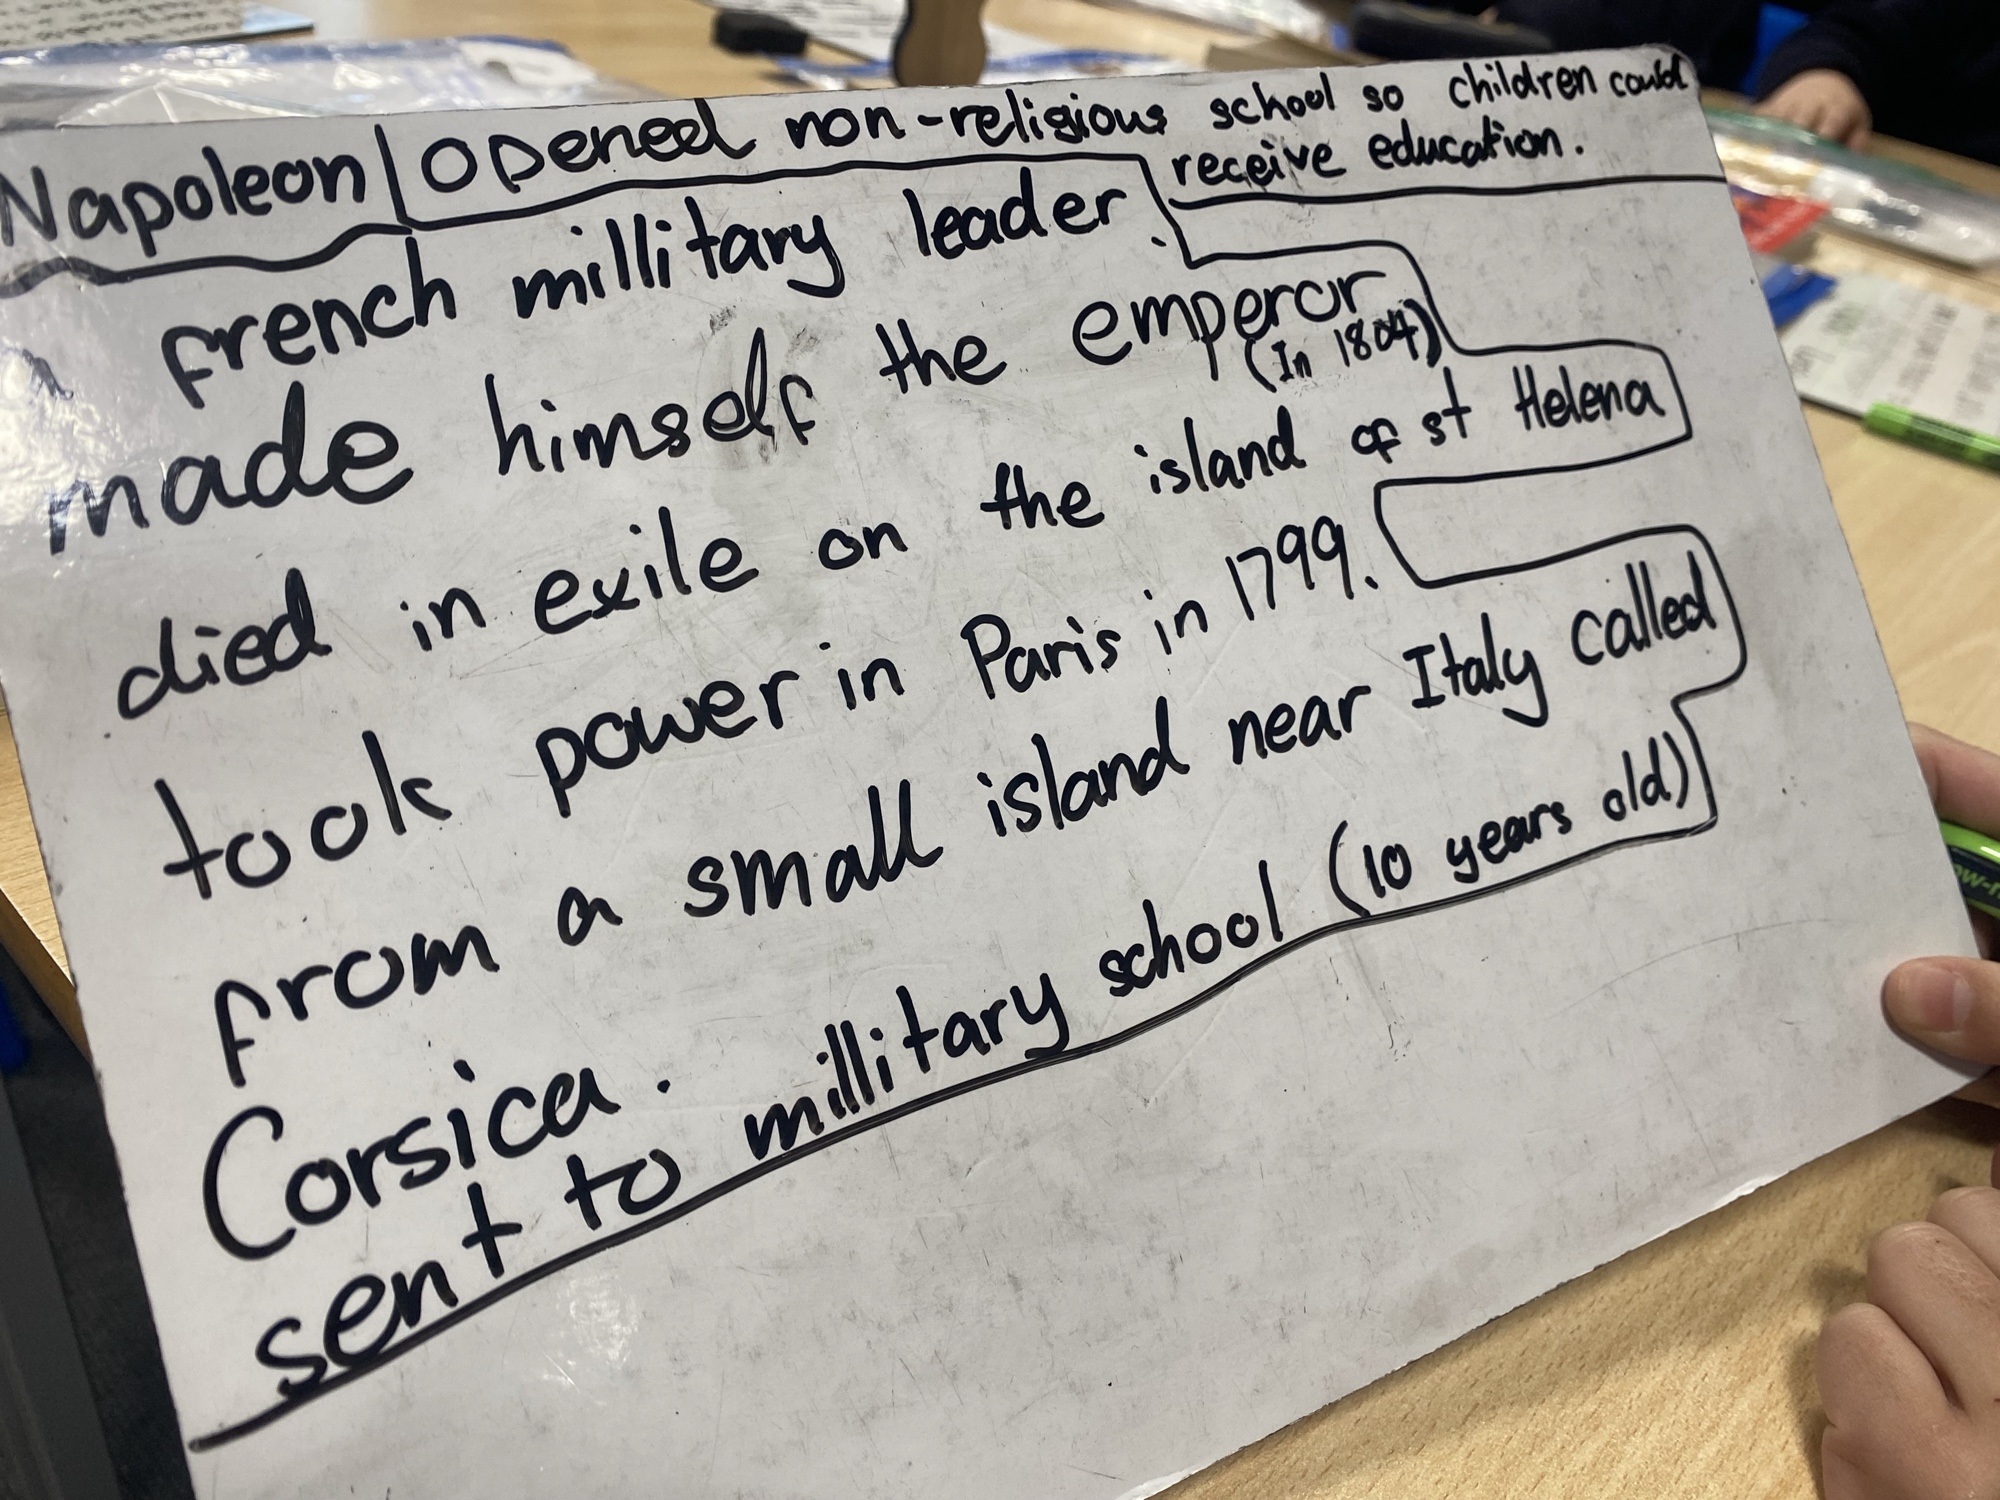 Napoleon
Opened non-religious school so children could
receive education.
A french millitary leader.
made himself the emperor
(In 1804)
died in exile on the island of st Helena
took power in Paris in 1799.
from a small island near Italy called
Corsica.
sent to millitary school (10 years old)